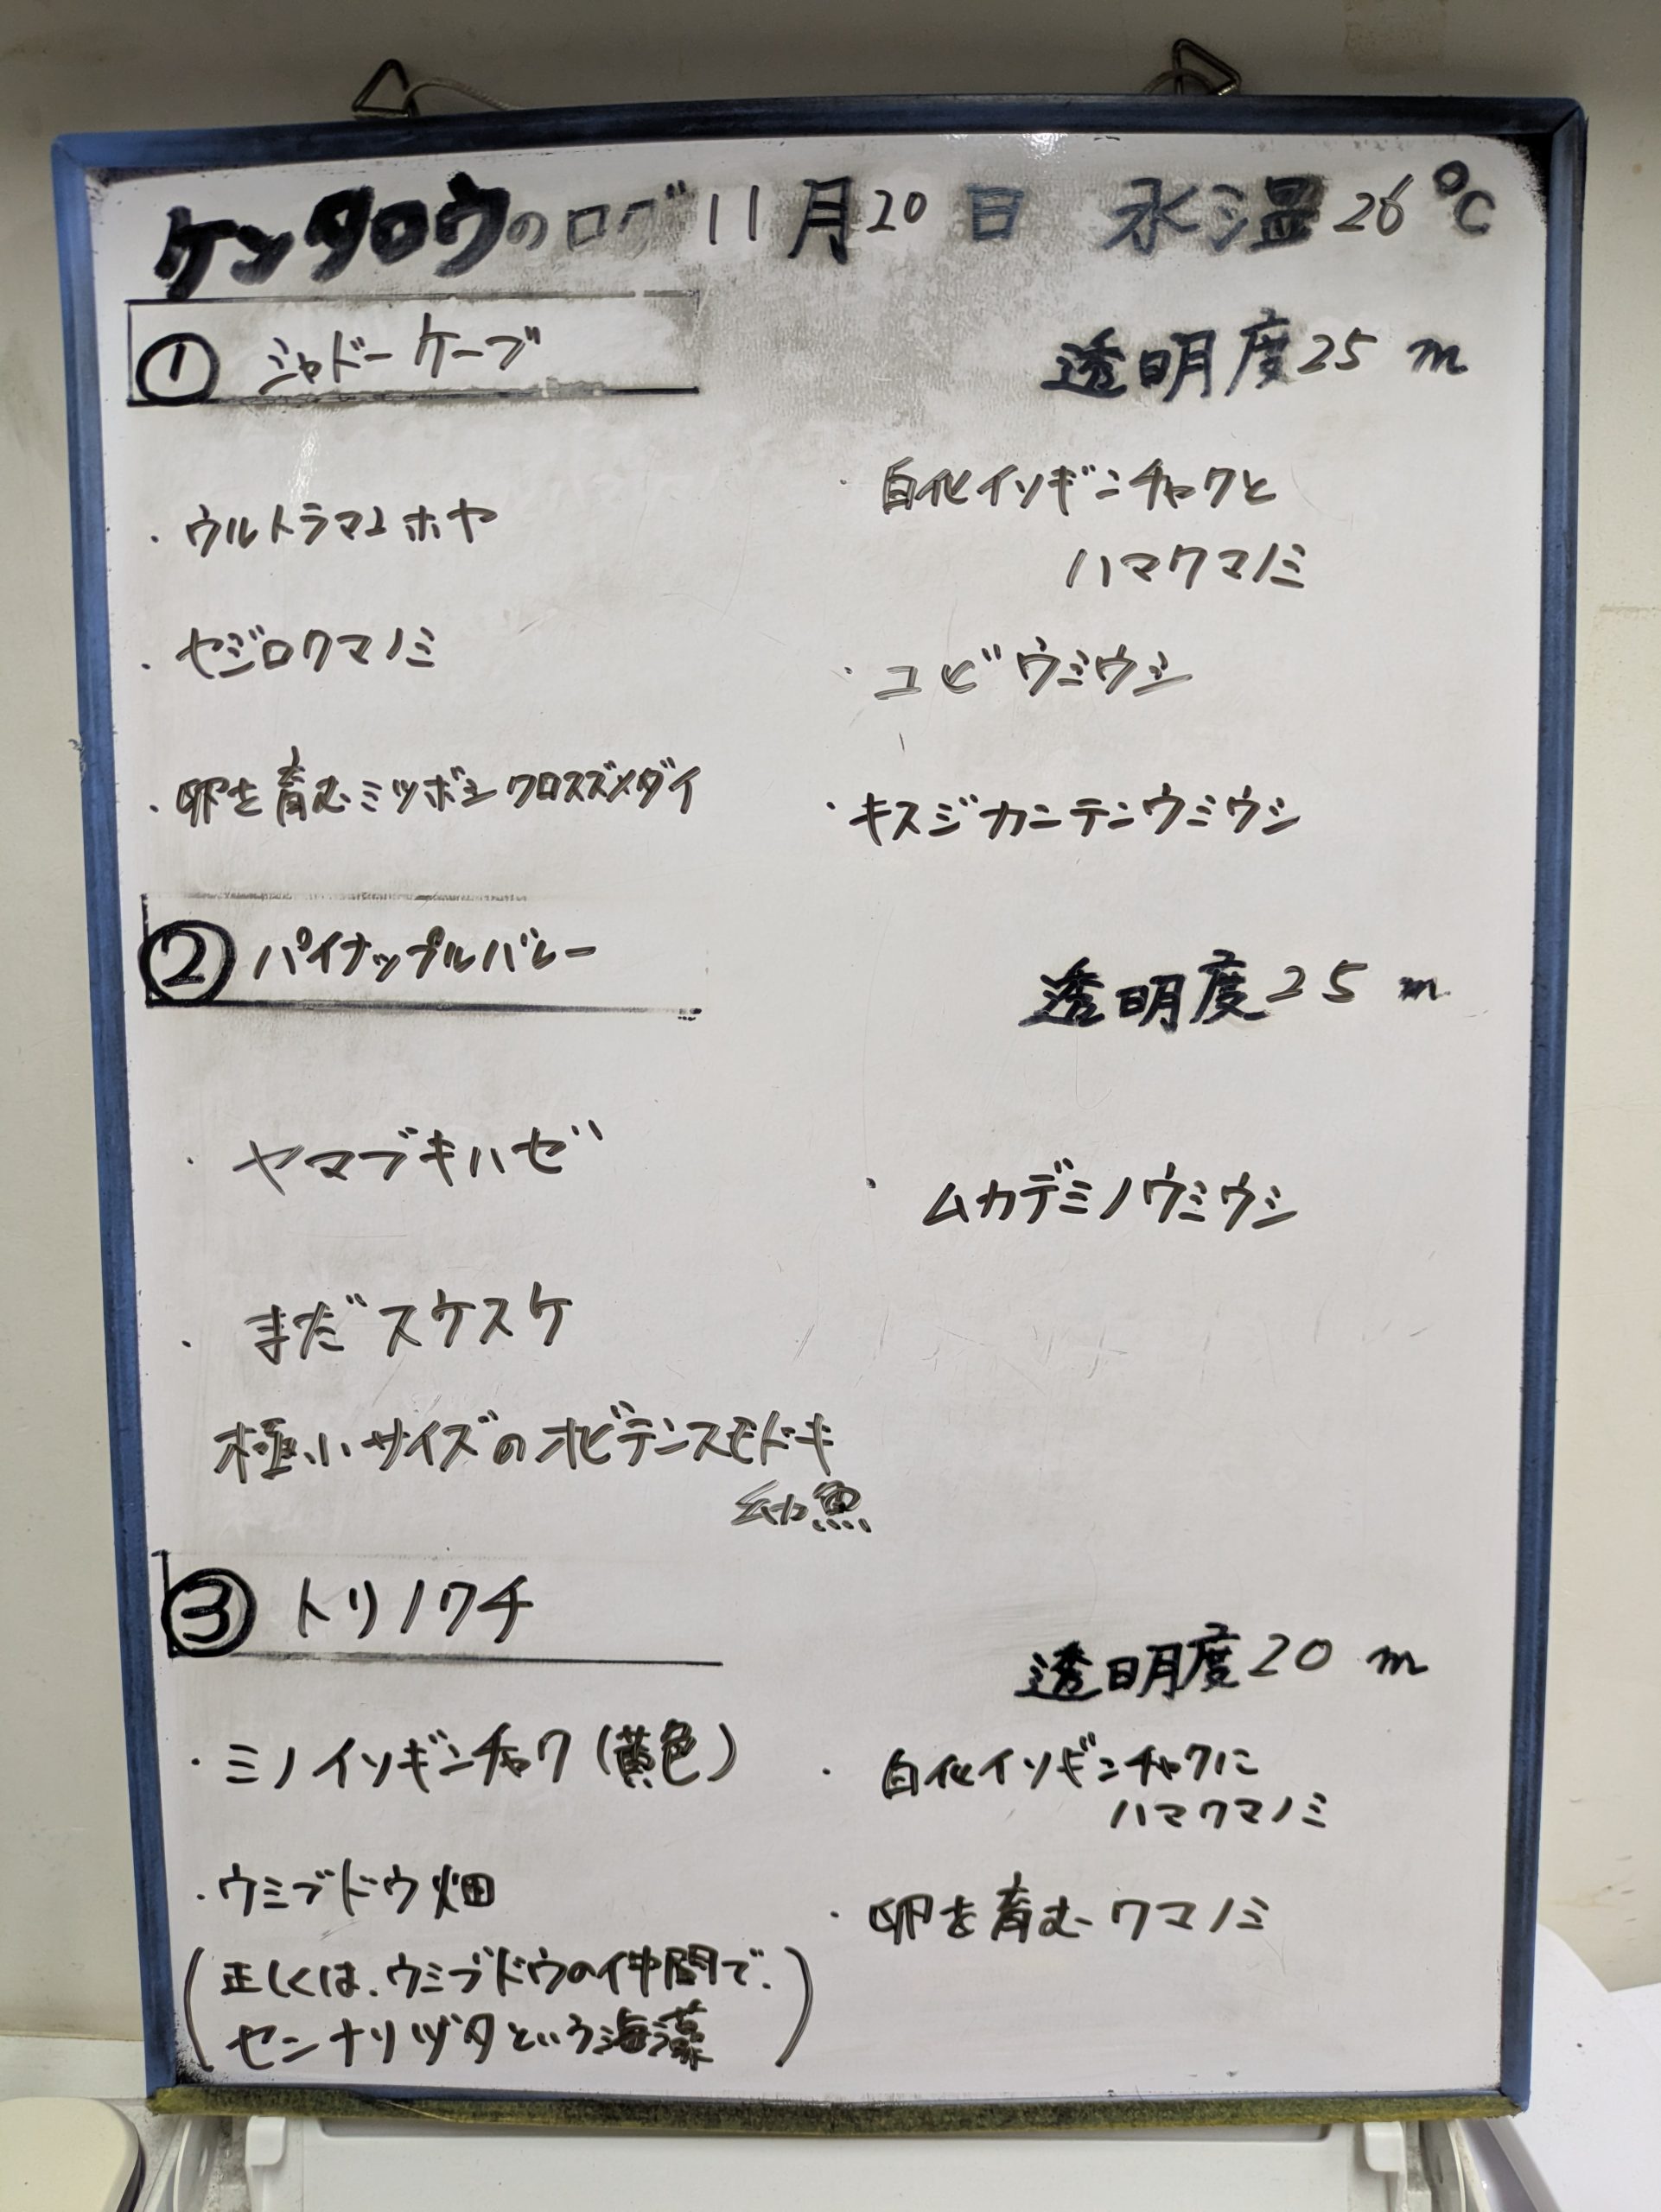 ケンタロウのログ 11月20日 水温26℃
① シャドーケーブ
透明度25m
・ウルトラマンホヤ
・セジロクマノミ
・卵を育むミツボシクロスズメダイ
・白化イソギンチャクと
ハマクマノミ
・コビウミウシ
・キスジカンテンウミウシ
② パイナップルバレー
透明度25m
・ヤマブキハゼ
・まだスケスケ
極小サイズのオビテンスモドキ
幼魚
・ムカデミノウミウシ
③ トリノクチ
透明度20m
・ミノイソギンチャク(黄色)
・ウミブドウ畑
(正しくは、ウミブドウの仲間で、
センナリヅタという海藻)
・白化イソギンチャクに
ハマクマノミ
・卵を育むクマノミ